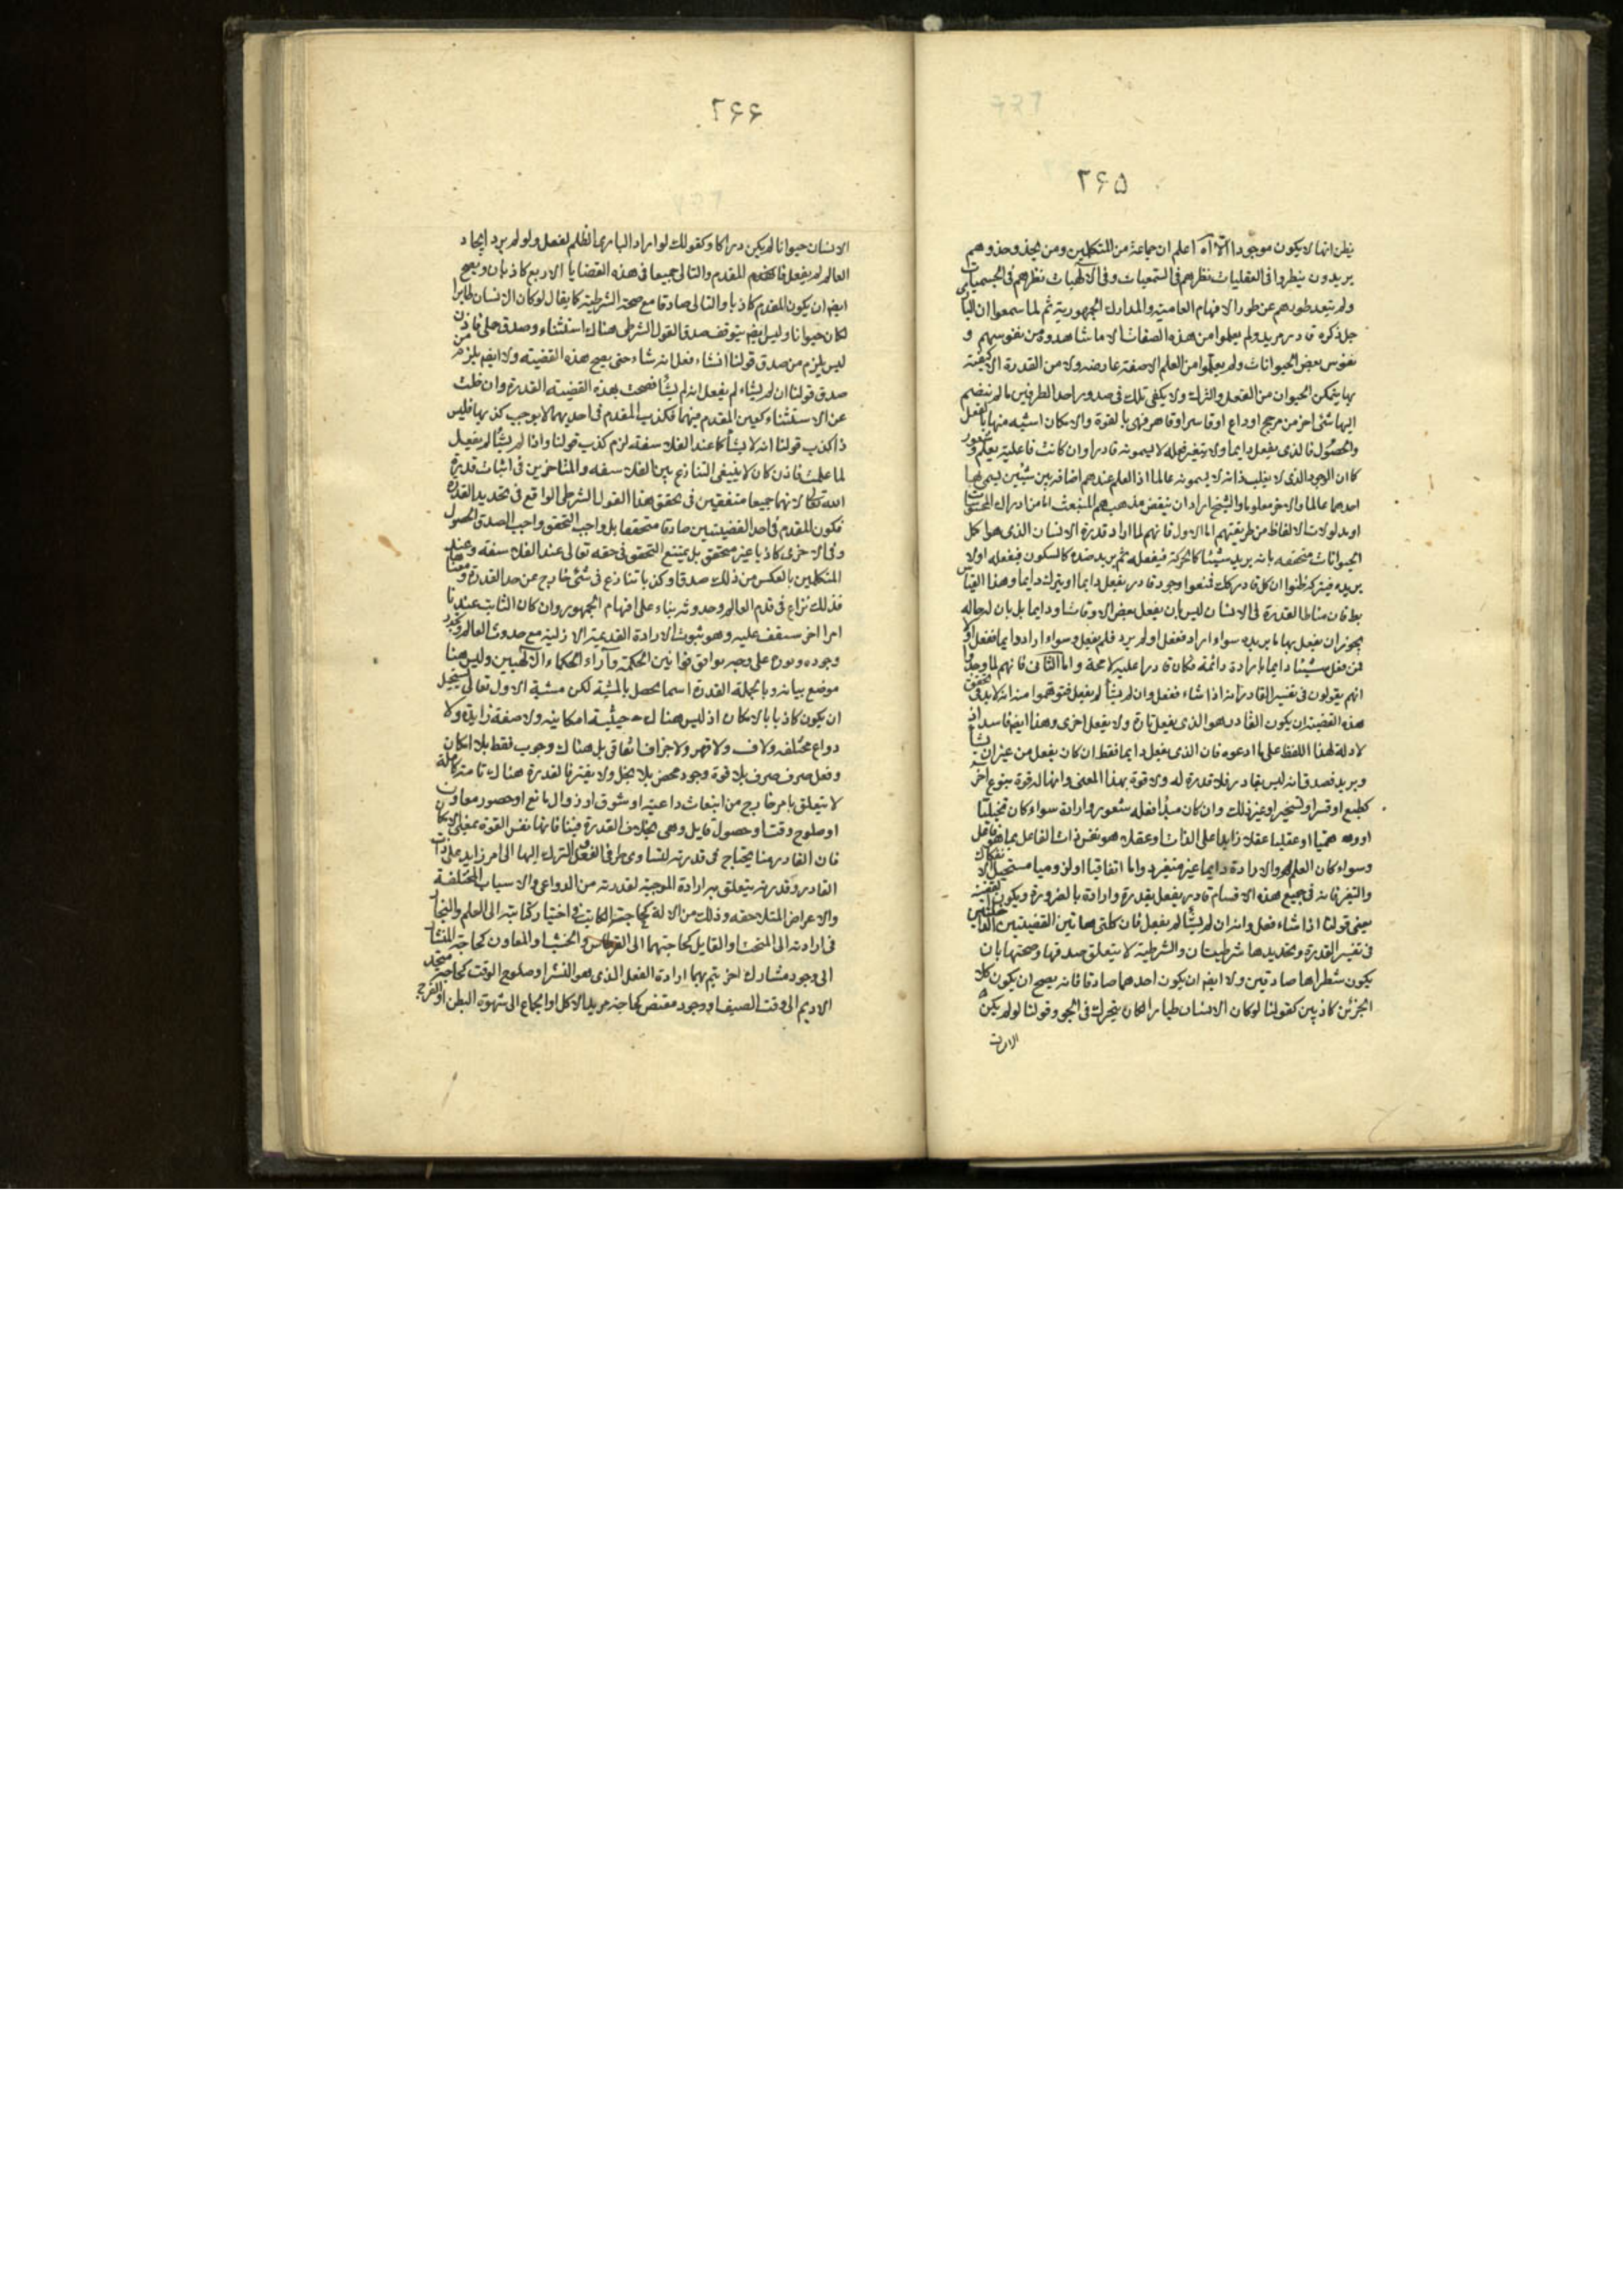 ۲۶۵
يظن انها لا يكون موجودا الا آه اعلم ان جماعة من المتكلمين ومن يحذو حذوهم
يريدون ينظروا فى العقليات نظرهم فى السمعيات وفى الالهيات نظرهم فى الجسميات
ولم يتعد طورهم عن طور الافهام العامية والمدارك الجمهورية ثم لما سمعوا ان البارى
جل ذكره قادر مريد ولم يعلموا من هذه الصفات الا ما شاهدوه من نفوسهم و
نفوس بعض الحيوانات ولم يعلموا من العلم الا صفة عارضه ولا من القدرة الا كيفية
بها يتمكن الحيوان من الفعل والترك ولا يكفى تلك فى صدور احد الطرفين ما لم ينضم
اليها شئ اخر من مرجح او داع او قاسر او قاهر فهى بالقوة والامكان اشبه منها بالفعل
والحصول فالذى يفعل دايما ولا يتغير فعله لا يسمونه قادرا وان كانت فاعليته بعلم وشعور
كما ان الوجود الذى لا يغلب ذاته لا يسمونه عالما اذ العلم عندهم اضافة بين شيئين يسمى بها
احدهما عالما والاخر معلوما والشيخ اراد ان ينقض مذهبهم المنبعث اما من ادراك المحسوسات
او مدلولات الالفاظ من طريقتهم اما الاول فانهم لما اراد قدرة الانسان الذى هو اكمل
الحيوانات متحققه بانه يريد شيئا كالحركة فيفعله ثم يريد ضده كالسكون فيفعله او لا
يريده فيتركه ظنوا ان كل قادر كك فمنعوا وجود قادر يفعل دايما او يترك دايما وهذا القياس
بط فان مناط القدرة فى الانسان ليس بان يفعل بعض الاوقات او دايما بل بان له حاله
يجوز ان يفعل بها ما يريده سواء اراد ففعل او لم يرد فلم يفعل وسواء اراد دايما ففعل او لا
فمن فعل شيئا دايما بارادة دائمة فكان قادرا عليه لا محة واما الثانى فانهم لما وجدوا
انهم يقولون فى تفسير القادر انه اذا شاء ففعل وان لم يشأ لم يفعل فتوهموا منه انه لا بد فى تحقق
هذه القضية ان يكون القادر هو الذى يفعل تارة ولا يفعل اخرى وهذا ايضم فاسد اذ
لا دلالة لهذا اللفظ على ما ادعوه فان الذى يفعل دايما فقط ان كان يفعل من غير ان يشاء
ويريد فصدق انه ليس بقادر فلا قدرة له ولا قوة بهذا المعنى وانما له قوة بنوع اخر
كطبع او قسر او تسخير او غير ذلك وان كان مبدأ فعله شعور وارادة سواء كان تخيليا
او وهميا او عقليا عقلا زايدا على الذات او عقلا هو نفس ذات الفاعل بما هو فاعل
وسواء كان العلم والارادة دايما غير متغير دواما اتفاقيا او لزوميا مستحيل الانفكاك
والتغير فانه فى جميع هذه الاقسام قادر يفعل بقدرة وارادة بالضرورة ويكون يصدق
معنى قولنا اذا شاء فعل وانه ان لم يشأ لم يفعل فان كلتى هاتين القضيتين
فى تفسير القدرة وتحديدها شرطيتان والشرطية لا يتعلق صدقها وصحتها بان
يكون شطراها صادقين ولا ايضم ان يكون احدهما صادقا فانه يصح ان يكون كلا
الجزئين كاذبين كقولنا لو كان الانسان طيارا لكان يتحرك فى الجو وقولنا لو لم يكن
الانسان
۲۶۶
الانسان حيوانا لم يكن دراكا وكقولك لو اراد البارى الظلم لفعل ولو لم يرد ايجاد
العالم لم يفعل فالمقدم والتالى جميعا فى هذه القضايا الاربع كاذبان ويصح
ايضم ان يكون المقدم كاذبا والتالى صادقا مع صحة الشرطية كما يقال لو كان الانسان طايرا
لكان حيوانا وليس ايضم يتوقف صدق القول الشرطى هناك استثناء وصدق حملى فاذن
ليس يلزم من صدق قولنا ان شاء فعل انه شاء حتى يصح هذه القضية ولا ايضم يلزم من
صدق قولنا ان لم يشاء لم يفعل انه لم يشأ فصحت بهذه القضية القدرة وان خلت
عن الاستثناء كعين المقدم منهما فكذب المقدم فى احديهما لا يوجب كذبها فليس
اذا كذب قولنا انه لا يشأ كما عند الفلاسفة لزم كذب قولنا واذا لم يشأ لم يفعل
لما علمت فاذن كان لا ينبغى التنازع بين الفلاسفه والمتاخرين فى اثبات قدرة
الله تعالى لانهما جميعا متفقين فى تحقق هذا القول الشرطى الواقع فى تحديد القدرة
فكون المقدم فى احد القضيتين صادقا متحققا بل واجب التحقق واجب الصدق الحصول
وفى الاخرى كاذبا غير متحقق بل يمتنع التحقق فى حقه تعالى عند الفلاسفه وعند
المتكلمين بالعكس من ذلك صدقا وكذبا تنازع فى شئ خارج عن حد القدرة ومعناها
فذلك نزاع فى قدم العالم وحدوثه بناء على افهام الجمهور وان كان الثابت عندنا
امرا اخر سيقف عليه وهو ثبوت الارادة القديمة الازلية مع حدوث العالم وتجدد
وجوده ودوره على وجه يوافق قوانين الحكمة وآراء الحكماء الالهيين وليس هنا
موضع بيانه وبالجملة القدرة اسما يحصل بالمشية لكن مشية الاول تعالى يستحيل
ان يكون كاذبا بالامكان اذ ليس هناك حيثية امكانية ولا صفة زايدة ولا
دواع مختلفه ولا قسر ولا قهر ولا جزاف اتفاقى بل هناك وجوب فقط بلا امكان
وفعل صرف بلا قوة وجود محض بلا بخل ولا يفتر فالقدرة هناك تامة كاملة
لا يتعلق بامر خارج من انبعاث داعية او شوق او زوال مانع او حضور معاون
او صلوح وقت او حصول قابل وهى بخلاف القدرة فينا فانها نفس القوة بمعنى الامكان
فان القادر منا يحتاج فى قدرته لتساوى طرفى الفعل والترك اليها الى امر زايد على ذات
القادر وقدرته يتعلق به ارادة الموجبة لقدرته من الدواعى والاسباب المختلفة
والاعراض المتلاحقه وذلك من الالة كحاجة الكاتب فى اختيار كتابته الى القلم والنجار
فى ارادته الى المنحت او القابل كحاجتهما الى القرطاس والخشب او المعاون كحاجة النشار
الى وجود مشارك اخر يتم بهما ارادة الفعل الذى هو النشر او صلوح الوقت كحاجة متخذ
الاديم الى وقت الصيف او وجود مقتض كحاجة مريد الاكل والجماع الى شهوة البطن او الفرج